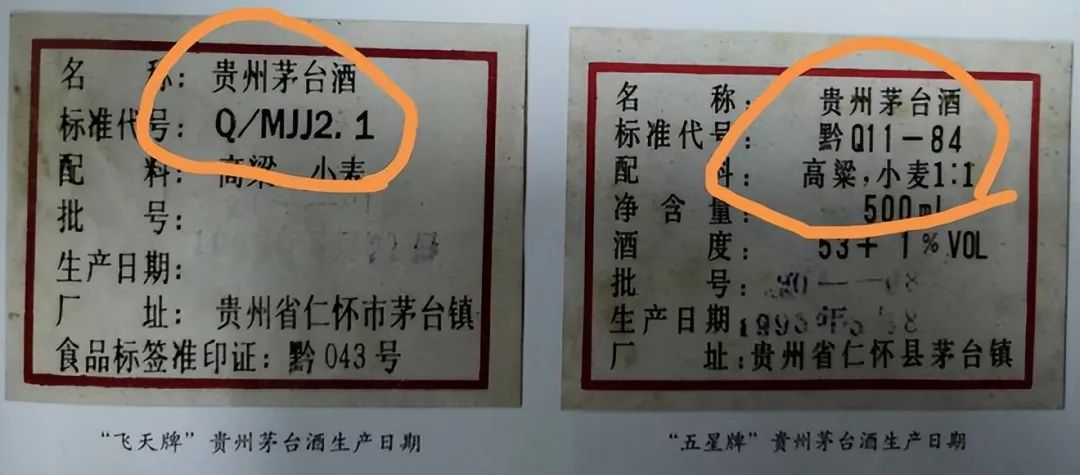 名 称: 贵州茅台酒
标准代号: Q/MJJ2.1
配 料: 高粱 小麦
批 号:
生产日期:
厂 址: 贵州省仁怀市茅台镇
食品标签准印证: 黔 043 号
“飞天牌” 贵州茅台酒生产日期
名 称: 贵州茅台酒
标准代号: 黔Q11-84
配 料: 高粱,小麦1:1
净含量: 500ml
酒 度: 53+1%VOL
批 号:
生产日期
厂 址: 贵州省仁怀县茅台镇
“五星牌” 贵州茅台酒生产日期